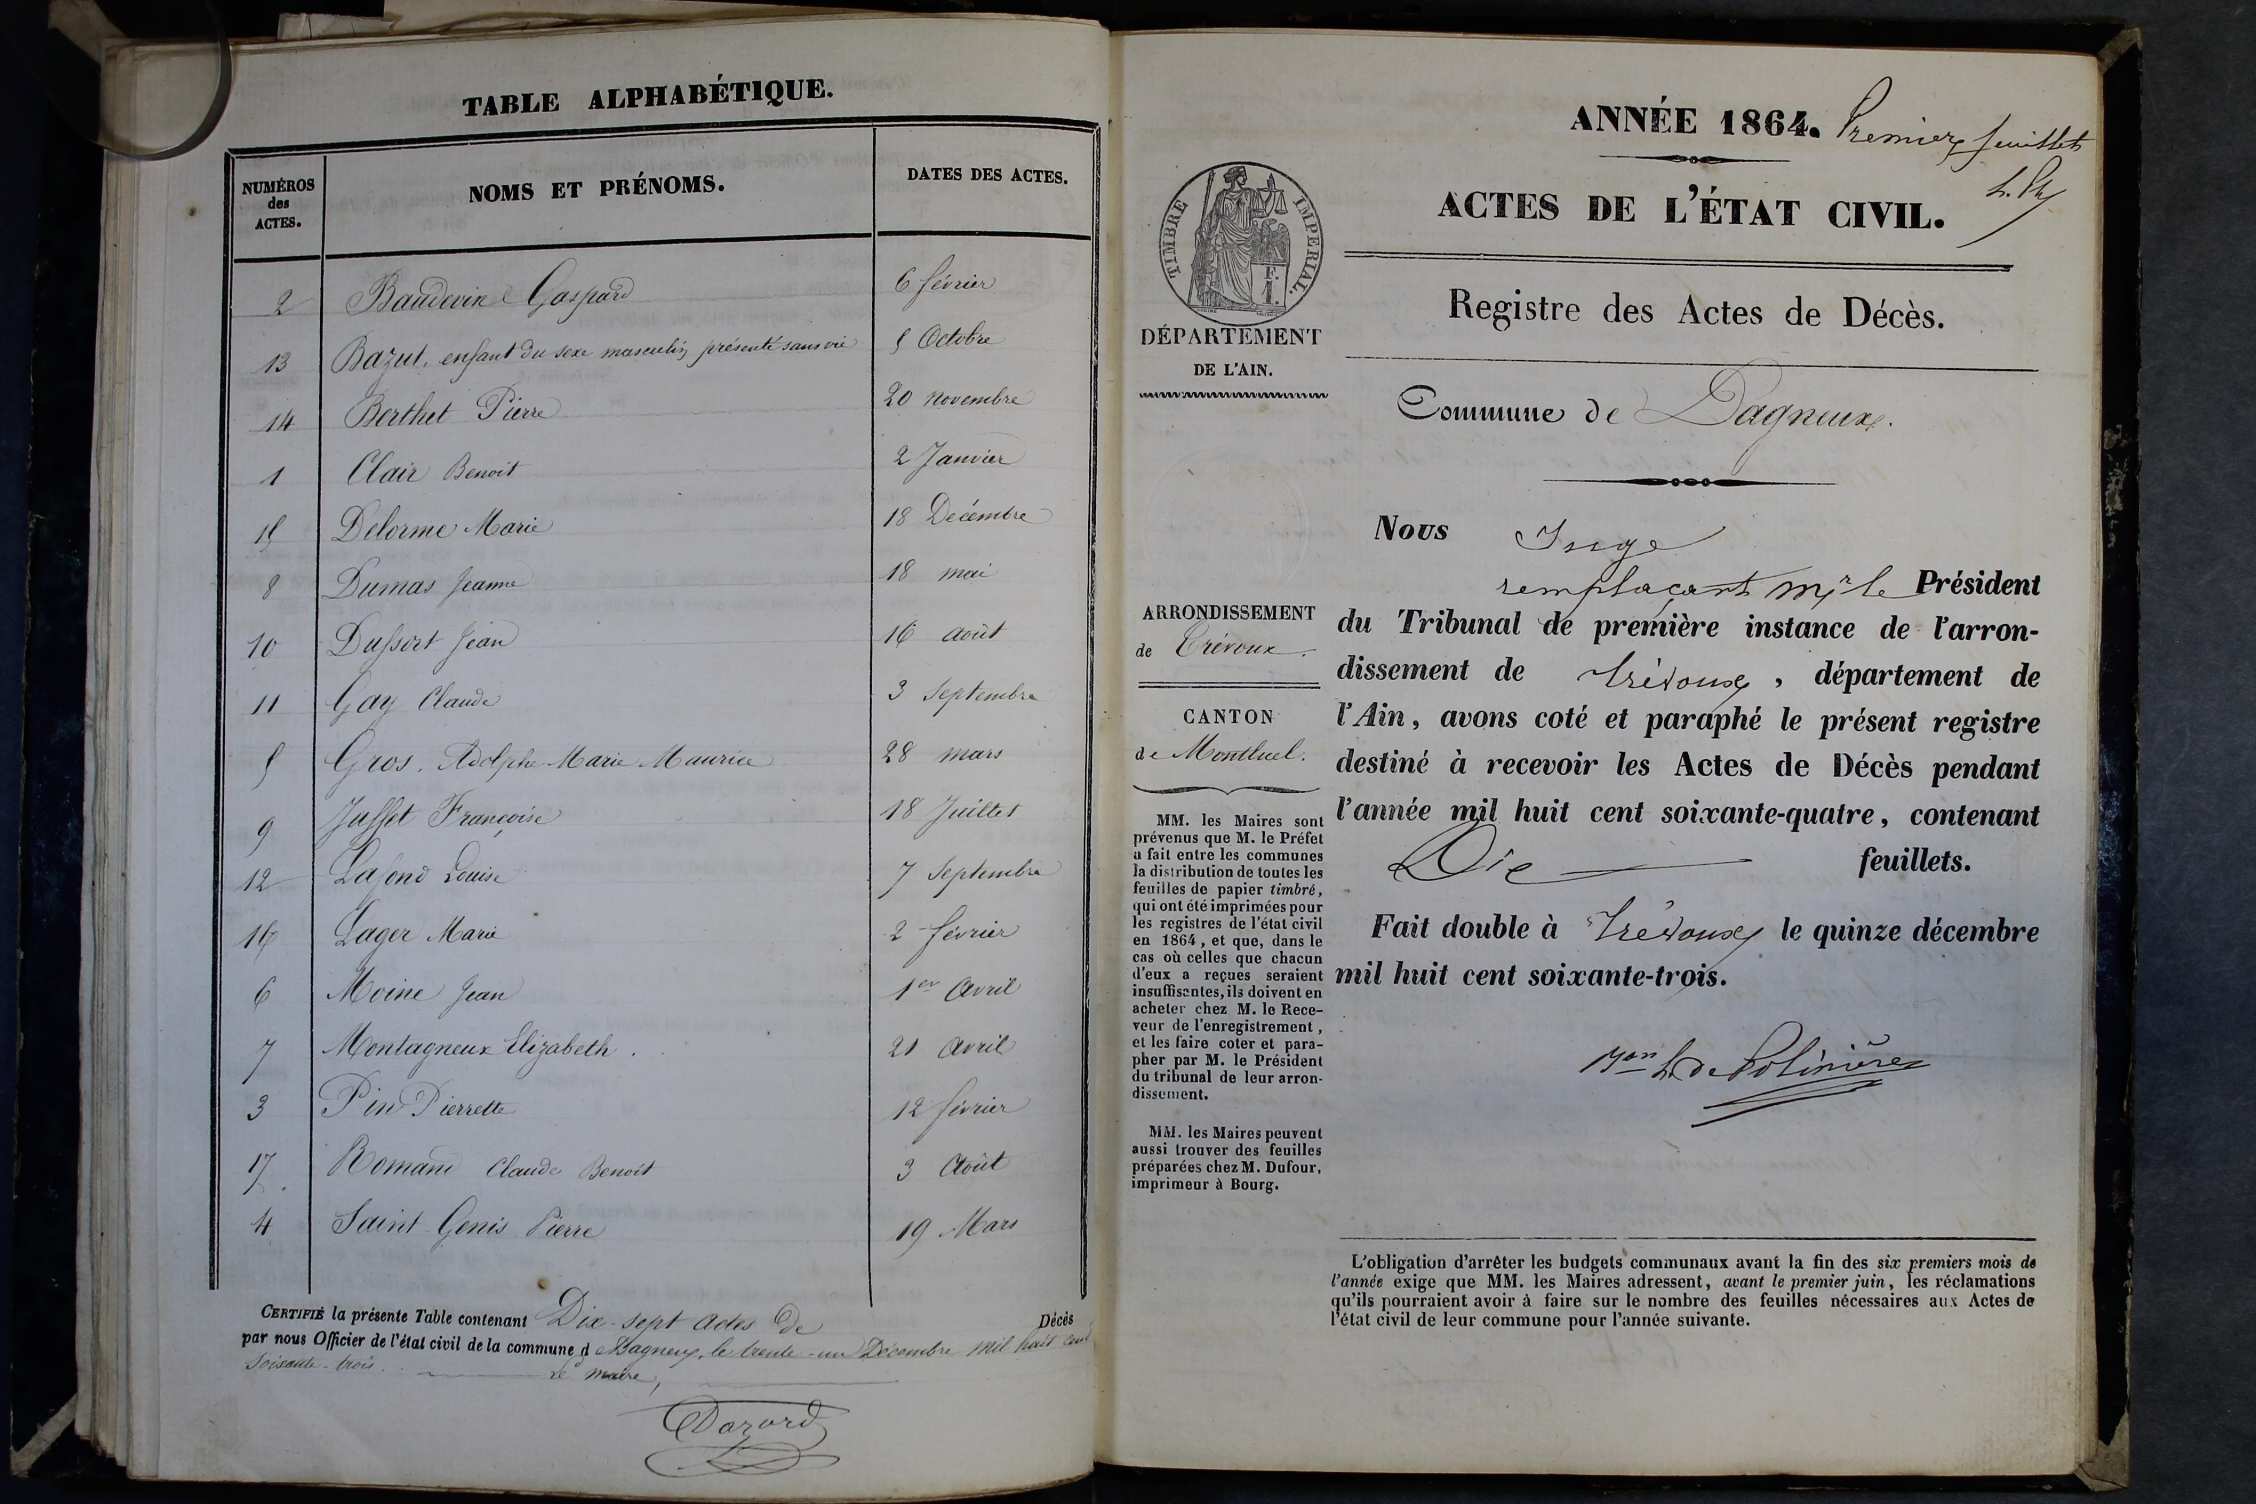 TABLE ALPHABÉTIQUE.
NUMÉROS des ACTES. NOMS ET PRÉNOMS. DATES DES ACTES.
2 Baudevin Gaspard 6 février
13 Bazut, enfant du sexe masculin présenté sans vie 5 Octobre
14 Berthet Pierre 20 novembre
1 Clair Benoit 2 Janvier
15 Delorme Marie 18 Décembre
8 Dumas Jeanne 18 mai
10 Dussort Jean 16 août
11 Gay Claude 3 Septembre
5 Gros, Adolphe Marie Maurice 28 mars
9 Jusset Françoise 18 Juillet
12 Lafond Louise 7 Septembre
16 Lager Marie 2 février
6 Moine Jean 1er Avril
7 Montagneux Elizabeth. 21 avril
3 Pin Pierrette 12 février
17 Romand Claude Benoit 3 Août
4 Saint-Genis Pierre 19 Mars
CERTIFIÉ la présente Table contenant Dix-sept actes de Décès
par nous Officier de l'état civil de la commune d Dagneux, le trente-un Décembre mil huit cent
soixante-trois.
Le maire,
Dazord
ANNÉE 1864. Premier feuillet
ACTES DE L'ÉTAT CIVIL.
TIMBRE IMPERIAL.
DÉPARTEMENT
DE L'AIN.
Registre des Actes de Décès.
Commune de Dagneux.
ARRONDISSEMENT
de Trévoux.
CANTON
de Montluel.
MM. les Maires sont
prévenus que M. le Préfet
a fait entre les communes
la distribution de toutes les
feuilles de papier timbré,
qui ont été imprimées pour
les registres de l'état civil
en 1864, et que, dans le
cas où celles que chacun
d'eux a reçues seraient
insuffisantes, ils doivent en
acheter chez M. le Rece-
veur de l'enregistrement,
et les faire coter et para-
pher par M. le Président
du tribunal de leur arron-
dissement.
MM. les Maires peuvent
aussi trouver des feuilles
préparées chez M. Dufour,
imprimeur à Bourg.
Nous Juge
remplaçant Mr le Président
du Tribunal de première instance de l'arron-
dissement de Trévoux, département de
l'Ain, avons coté et paraphé le présent registre
destiné à recevoir les Actes de Décès pendant
l'année mil huit cent soixante-quatre, contenant
Dix feuillets.
Fait double à Trévoux le quinze décembre
mil huit cent soixante-trois.
Bon L. de Polinière
L'obligation d'arrêter les budgets communaux avant la fin des six premiers mois de
l'année exige que MM. les Maires adressent, avant le premier juin, les réclamations
qu'ils pourraient avoir à faire sur le nombre des feuilles nécessaires aux Actes de
l'état civil de leur commune pour l'année suivante.